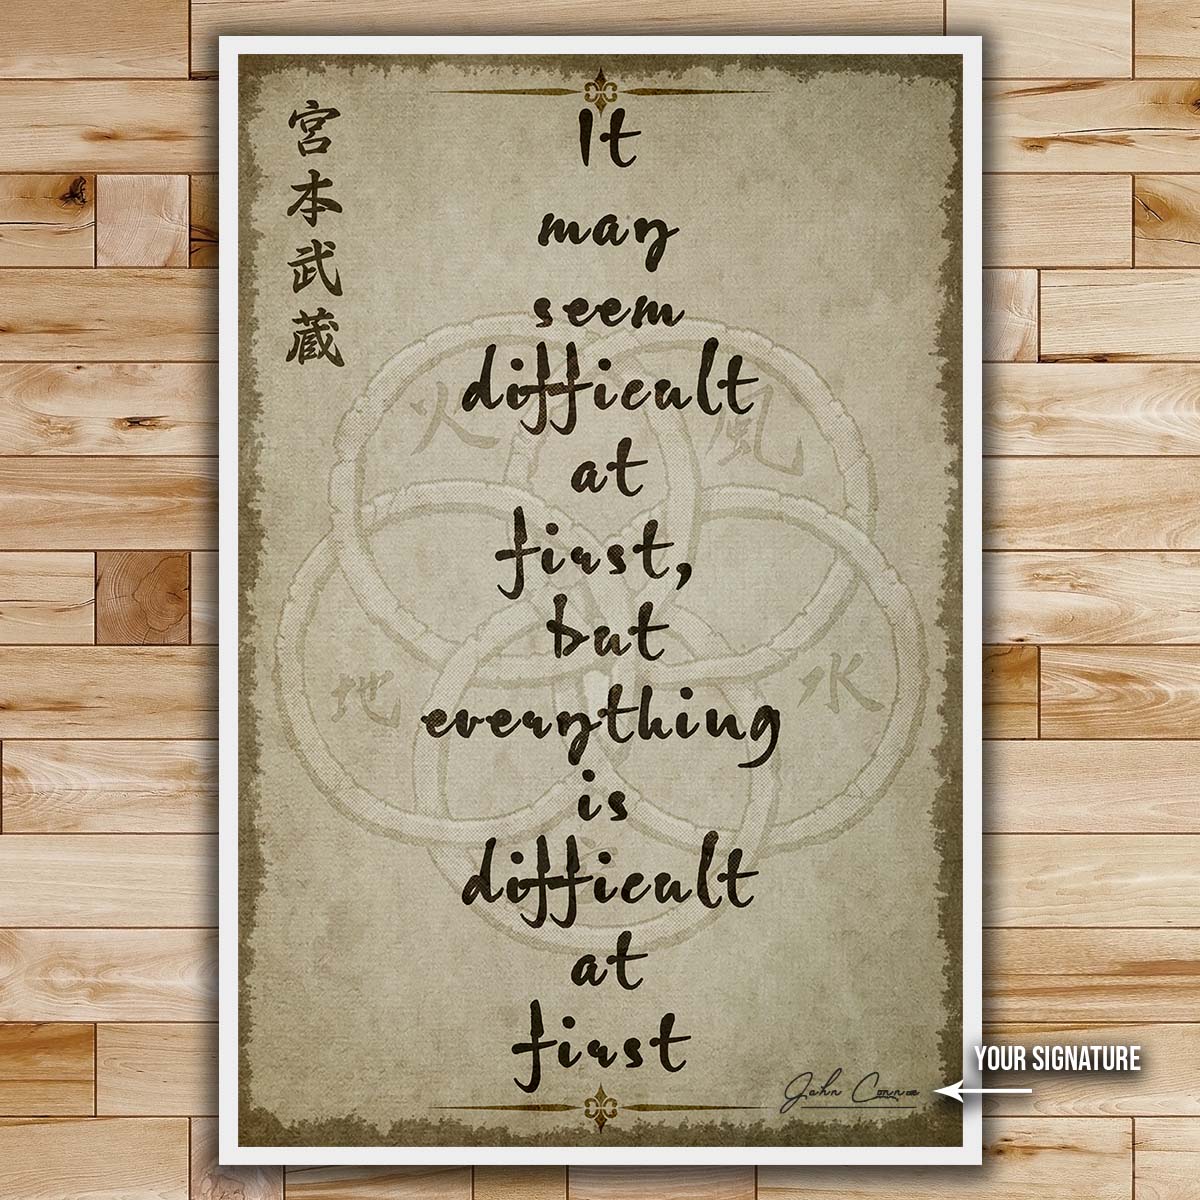 宮本武蔵
It
may
seem
difficult
at
first,
but
everything
is
difficult
at
first
火
風
地
水
John Connoe
YOUR SIGNATURE